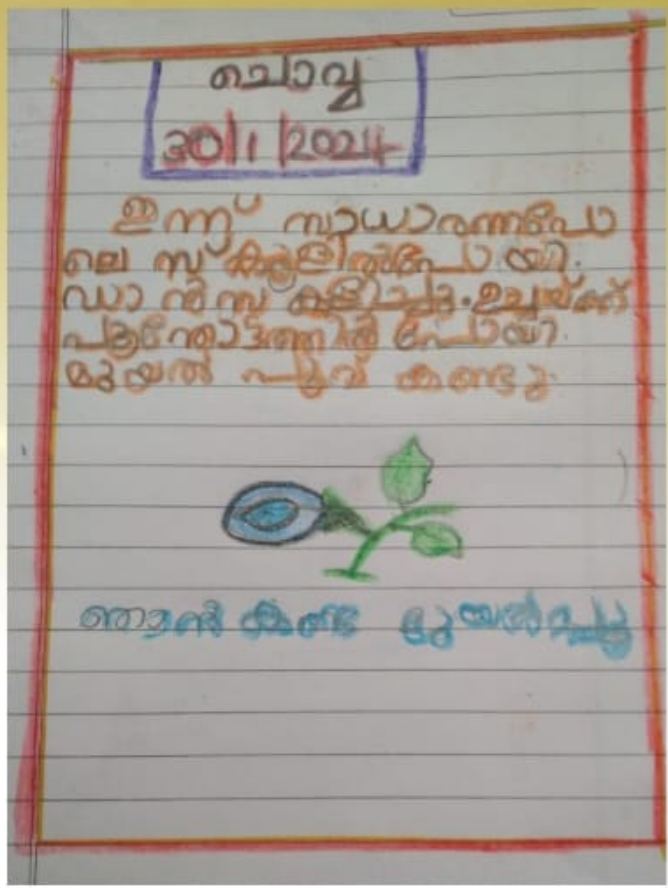 ചൊവ്വ
30/1/2024
ഇന്ന് സാധാരണപോ
ലെ സ്കൂളിൽപോയി.
ഡാൻസ് കളിച്ചു. ഉച്ചയ്ക്ക്
പൂന്തോട്ടത്തിൽ പോയി.
മുയൽ പൂവ് കണ്ടു.
ഞാൻ കണ്ട മുയൽപ്പൂ